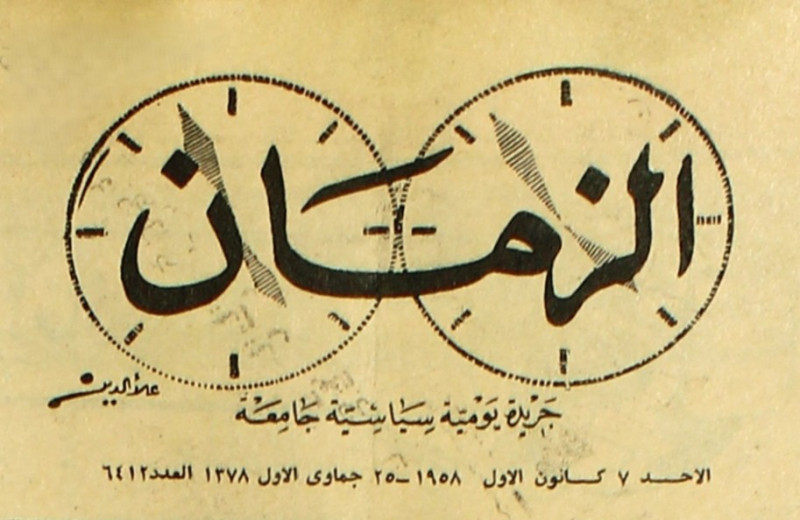 الزمان
علاء الدين
جريدة يومية سياسية جامعة
الاحد ٧ كانون الاول ١٩٥٨ ـ ٢٥ جماوى الاول ١٣٧٨ العدد ٦٤١٢